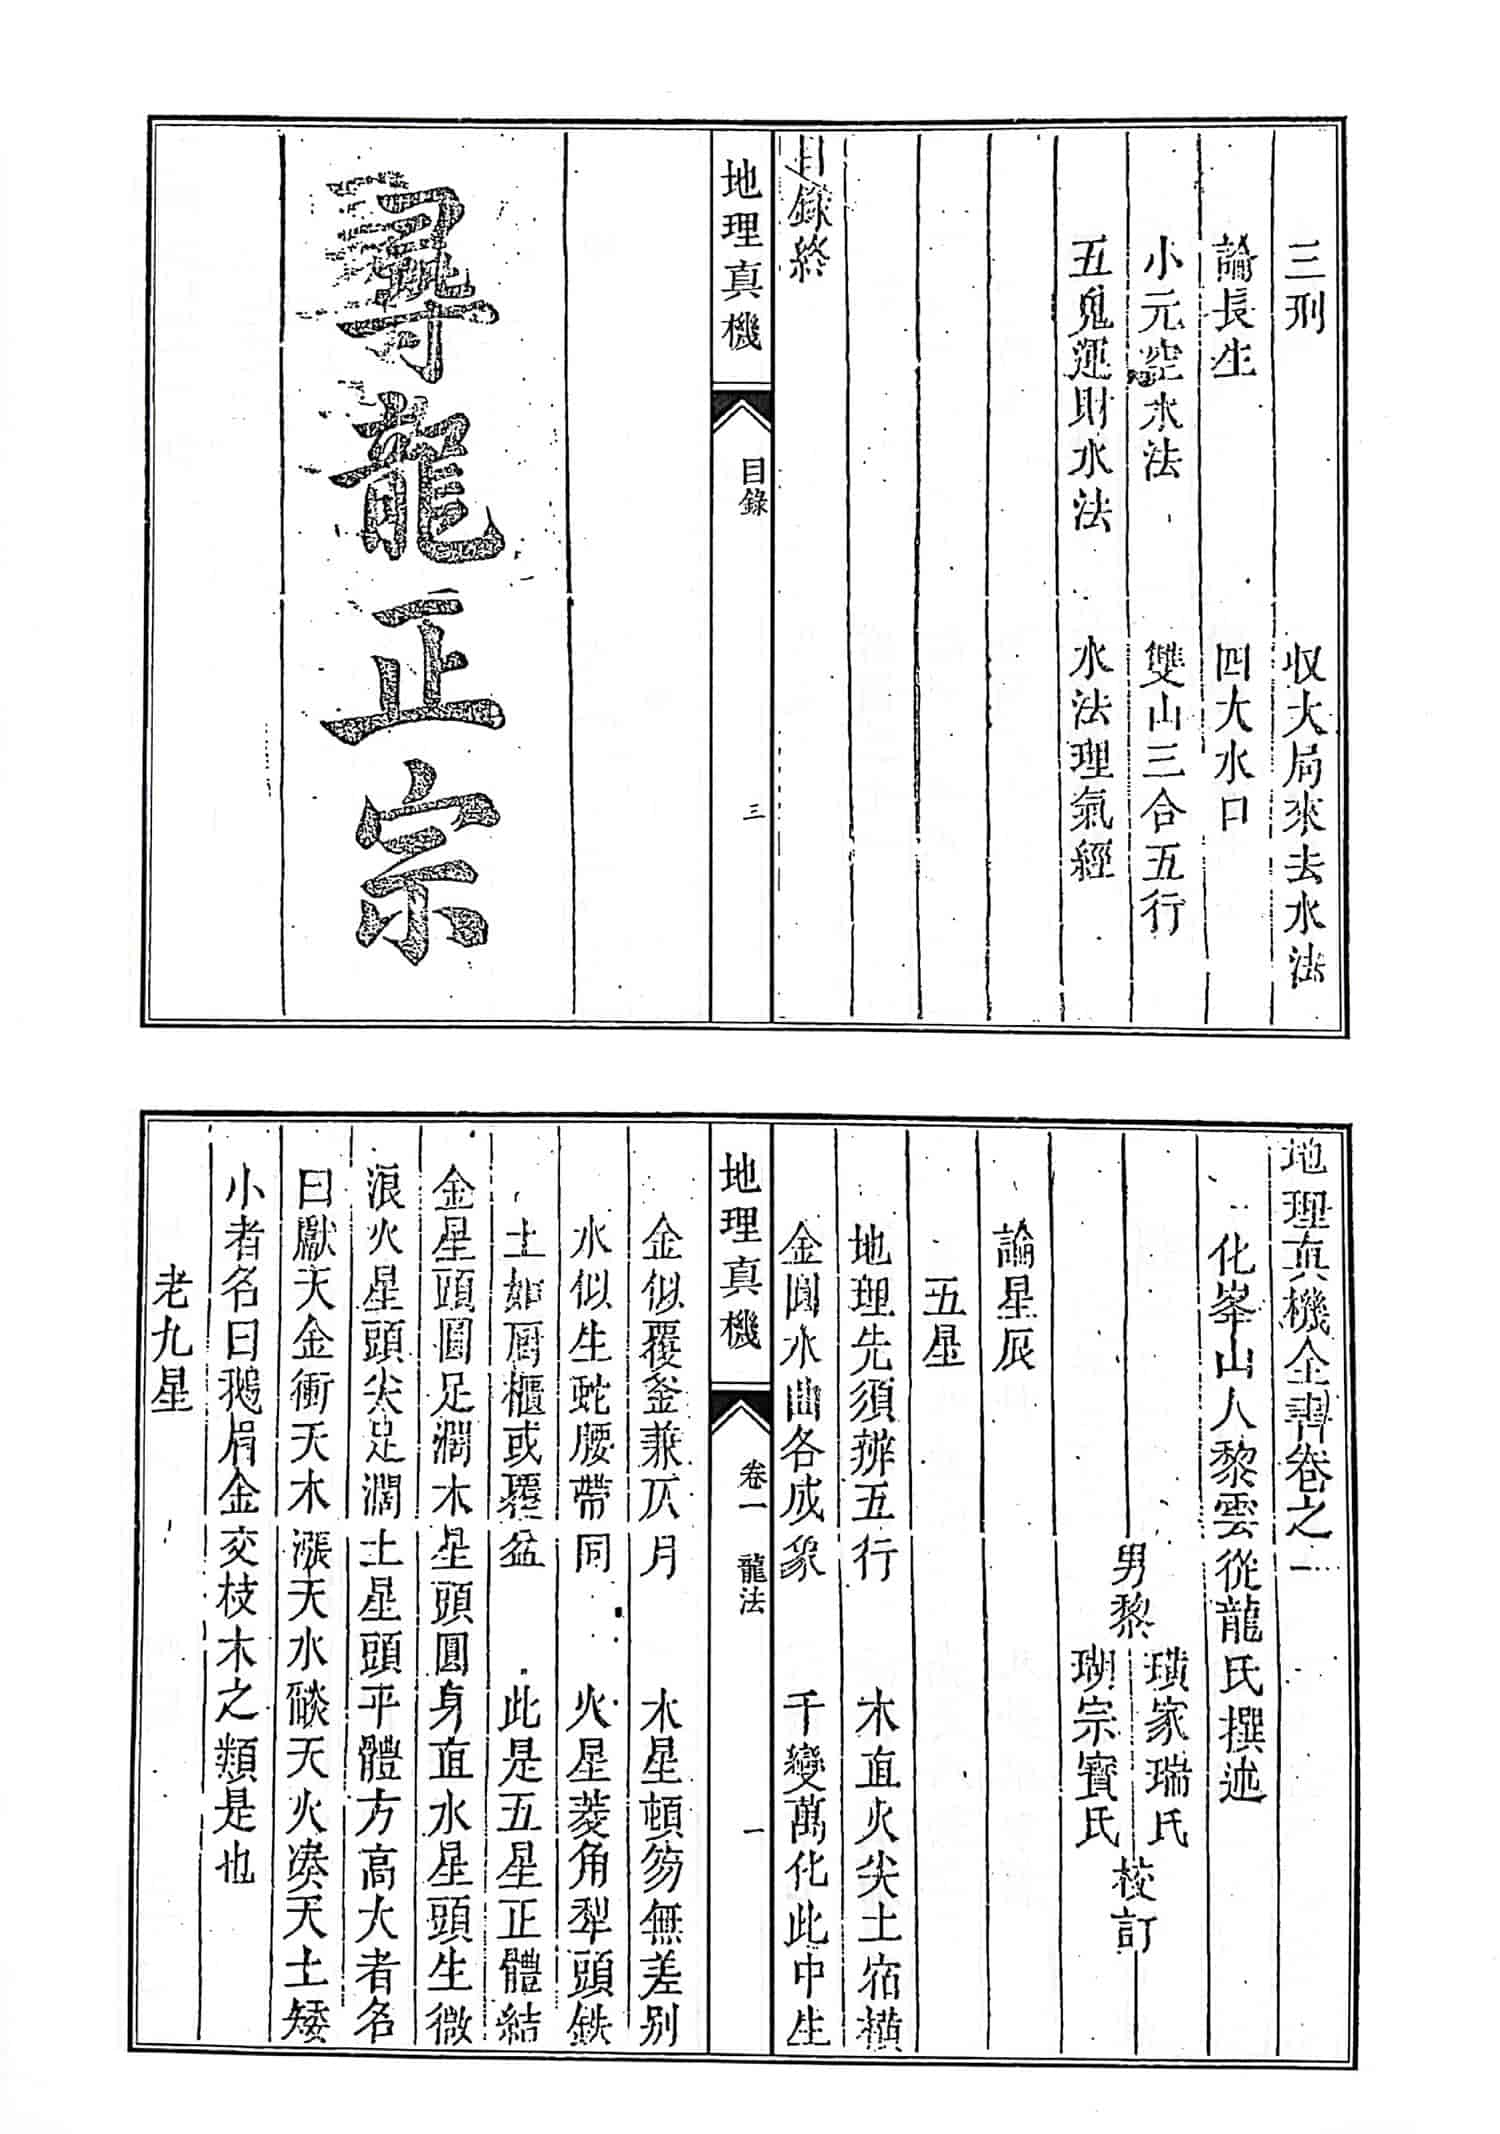 三刑 收大局來去水法
論長生 四大水口
小元空水法 雙山三合五行
五鬼運財水法 水法理氣經
目錄終
地理真機 目錄 三
尋龍正宗
地理真機全書卷之一
化峯山人黎雲從龍氏撰述
男黎 璜家瑞氏 瑚宗寳氏 校訂
論星辰
五星
地理先須辨五行 木直火尖土宿橫
金圓水曲各成象 千變萬化此中生
地理真機 卷一 龍法 一
金似覆釜兼仄月 木星頓笏無差别
水似生蛇腰帶同 火星菱角犁頭鉄
土如厨櫃或覆盆 此是五星正體結
金星頭圓足濶木星頭圓身直水星頭生微
浪火星頭尖足濶土星頭平體方高大者名
曰獻天金衝天木漲天水燄天火湊天土矮
小者名曰鵝眉金交枝木之類是也
老九星